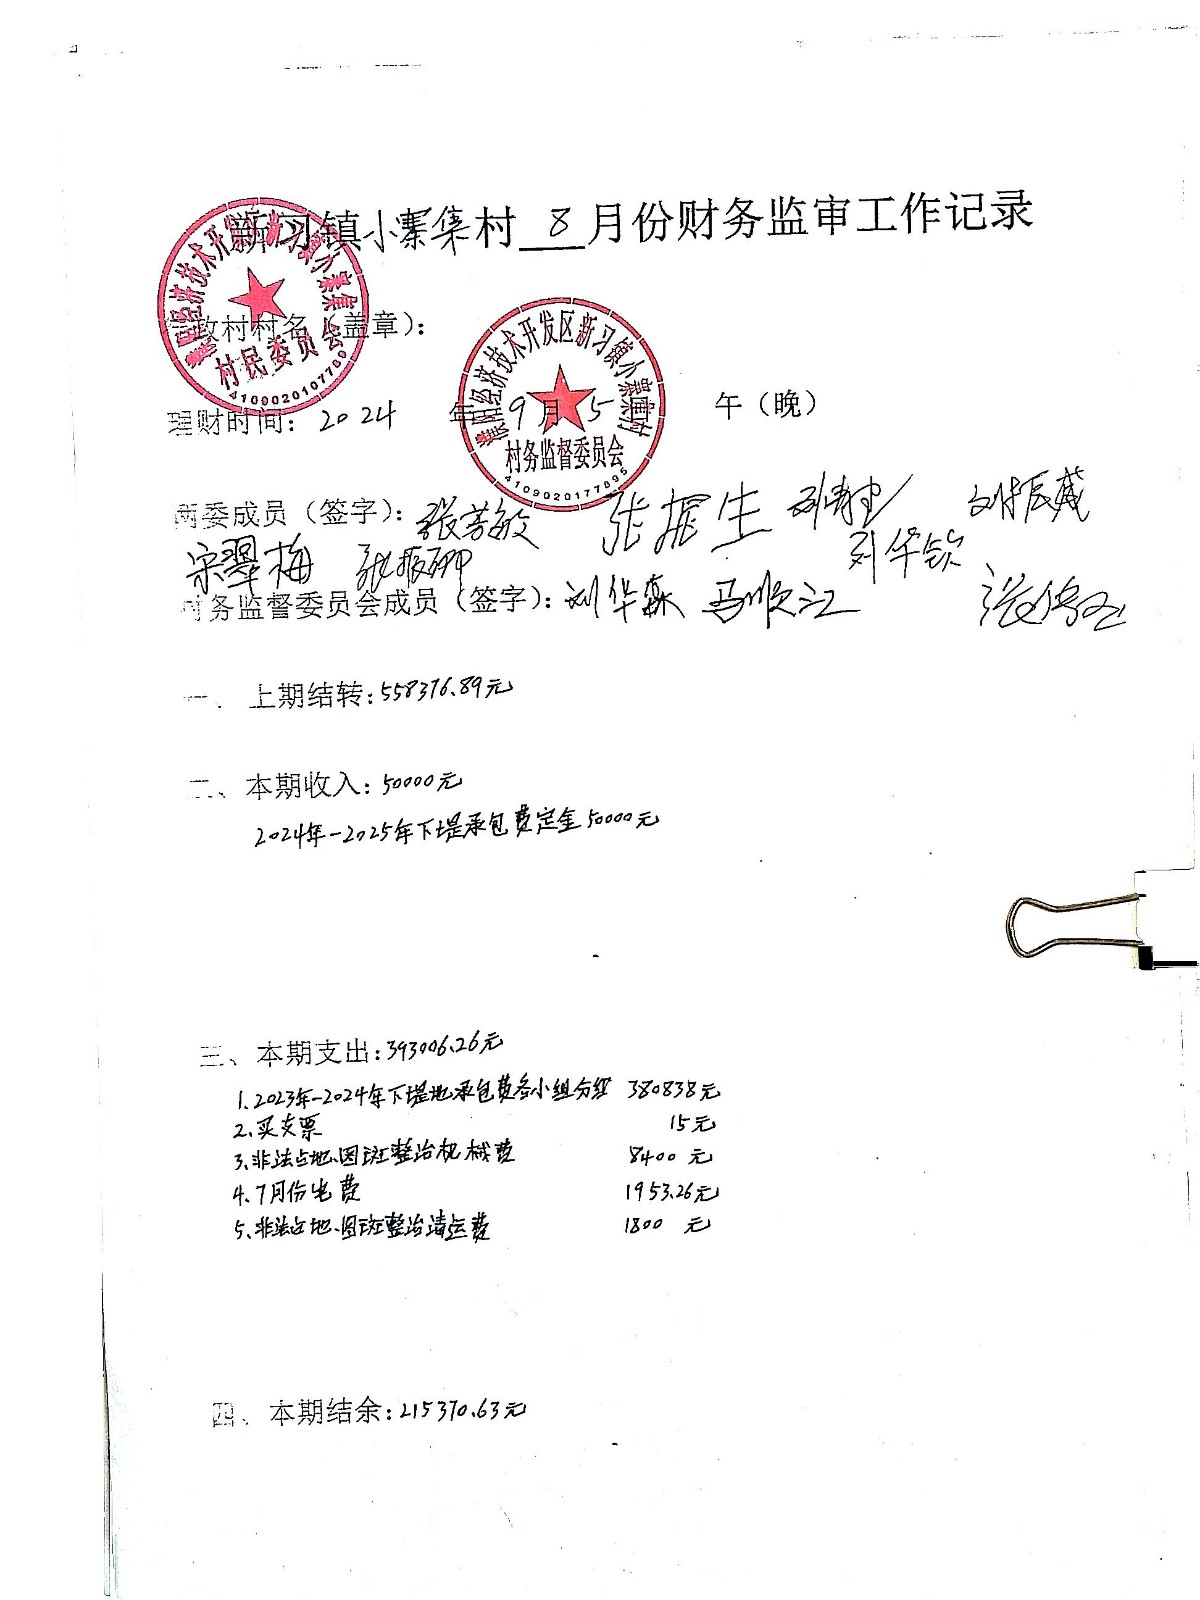 新习镇小寨集村 8 月份财务监审工作记录
濮阳经济技术开发区新习镇小寨集村
村民委员会
4109020107780
行政村村名（盖章）：
濮阳经济技术开发区新习镇小寨集村
村务监督委员会
4109020177895
理财时间：2024 年 9 月 5 午（晚）
两委成员（签字）：张芳敏 张振生 刘振威
宋翠梅 张振卿 刘华钦
村务监督委员会成员（签字）：刘华森 马顺江
一、上期结转：558376.89元
二、本期收入：50000元
2024年-2025年下堤承包费定金50000元
三、本期支出：393006.26元
1.2023年-2024年下堤地承包费各小组分红 380838元
2.买支票 15元
3.非法占地图斑整治机械费 8400 元
4.7月份电费 1953.26元
5.非法占地图斑整治清运费 1800 元
四、本期结余：215370.63元